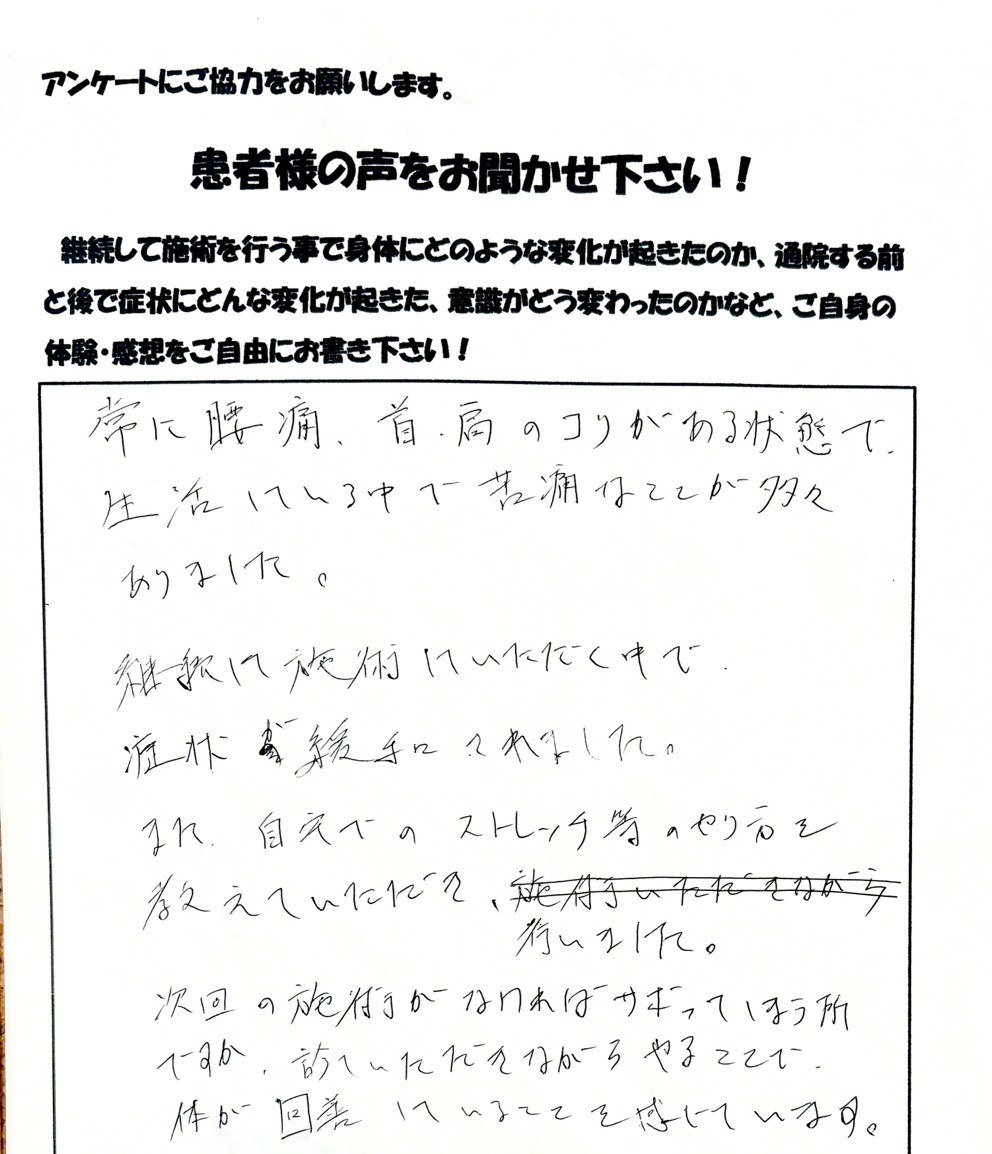 アンケートにご協力をお願いします。
患者様の声をお聞かせ下さい！
継続して施術を行う事で身体にどのような変化が起きたのか、通院する前
と後で症状にどんな変化が起きた、意識がどう変わったのかなど、ご自身の
体験・感想をご自由にお書き下さい！
常に腰痛、首・肩のコリがある状態で、
生活している中で苦痛なことが多々
ありました。
継続して施術していただく中で、
症状が緩和されました。
また、自宅でのストレッチ等のやり方を
教えていただき、施術いただきながら
行いました。
次回の施術がなければサボってしまう所
ですが、診ていただきながらやることで、
体が回善していることを感じています。